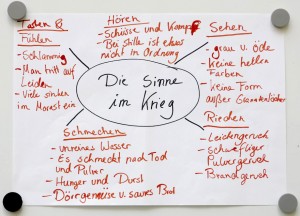 Tasten &
Fühlen
- Schlammig
- Man tritt auf
Leichen
- Viele sinken
im Morast ein
Hören
- Schüsse und Kampf
- Bei Stille ist etwas
nicht in Ordnung
Sehen
- grau u. öde
- keine hellen
Farben
- keine Form
außer Granattrichter
Die Sinne
im Krieg
Schmecken
- unreines Wasser
- Es schmeckt nach Tod
und Pulver
- Hunger und Durst
- Dörrgemüse u. saures Brot
Riechen
- Leichengeruch
- Schwefliger
Pulvergeruch
- Brandgeruch